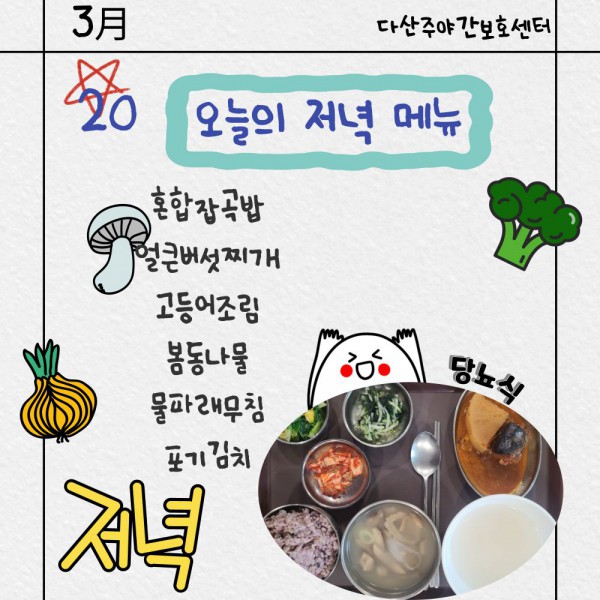 3月
다산주야간보호센터
20
오늘의 저녁 메뉴
혼합잡곡밥
얼큰버섯찌개
고등어조림
봄동나물
물파래무침
포기김치
당뇨식
저녁